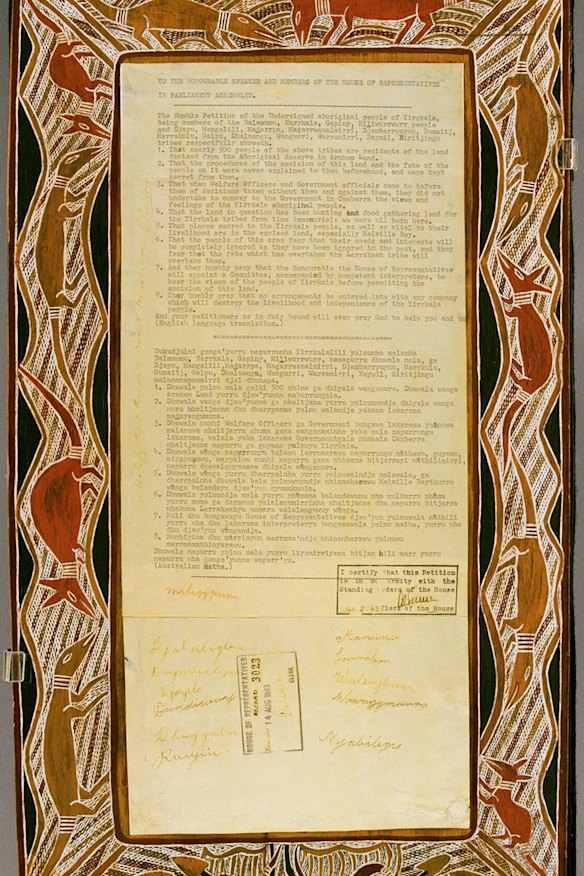 TO THE HONOURABLE SPEAKER AND MEMBERS OF THE HOUSE OF REPRESENTATIVES
IN PARLIAMENT ASSEMBLED.
The Humble Petition of the Undersigned aboriginal people of Yirrkala,
being members of the Balamumu, Narrkala, Gapiny, Miliwurrwurr people
and Djapu, Mangalili, Madarrpa, Magarrwanalmirri, Djambarrpuynu, Gumaitj,
Marrakulu, Galpu, Dhaluangu, Wangurri, Warramirri, Naymil, Riritjingu
tribes respectfully showeth.
1. That nearly 500 people of the above tribes are residents of the land
excised from the Aboriginal Reserve in Arnhem Land.
2. That the procedures of the excision of this land and the fate of the
people on it were never explained to them beforehand, and were kept
secret from them.
3. That when Welfare Officers and Government officials came to inform
them of decisions taken without them and against them, they did not
undertake to convey to the Government in Canberra the views and
feelings of the Yirrkala aboriginal people.
4. That the land in question has been hunting and food gathering land for
the Yirrkala tribes from time immemorial: we were all born here.
5. That places sacred to the Yirrkala people, as well as vital to their
livelihood are in the excised land, especially Melville Bay.
6. That the people of this area fear that their needs and interests will
be completely ignored as they have been ignored in the past, and they
fear that the fate which has overtaken the Larrakeah tribe will
overtake them.
7. And they humbly pray that the Honourable the House of Representatives
will appoint a Committee, accompanied by competent interpreters, to
hear the views of the people of Yirrkala before permitting the
excision of this land.
8. They humbly pray that no arrangements be entered into with any company
which will destroy the livelihood and independence of the Yirrkala
people.
And your petitioners as in duty bound will ever pray God to help you and us
(English language translation.)
Bukudjulni gonga'yurru napurrunha Yirrkalalili yolnunha malanha
Balamumu, Narrkala, Gapiny, Miliwurrwurr, nanapurru dhuwala mala, ga
Djapu, Mangalili, Madarrpa, Magarrwanalmirri, Djambarrpuynu, Marrakulu,
Gumaitj, Galpu, Dhaluangu, Wangurri, Warramirri, Naymil, Riritjingu
malamanapanmirri djal dhunapa.
1. Dhuwala yolnu mala galki 500 nhina ga dhiyala wanganura. Dhuwala wanga
Arnhem Land yurru djaw'yunna naburrungala.
2. Dhuwala wanga djaw'yunna ga nhaltjana yurru yolnunundja dhiyala wanga
nura nhaltjanna dhu dharrpanna yolnu walandja yakana lakarama
madayangumuna.
3. Dhuwala nunhi Welfare Officers ga Government bungawa lakarama yolnuwa
malanuwa nhaltjarra nhuma gana wanganaminha yaka nula napurrungu
lakarama, walala yaka lakarama Governmentgala nunhala Canberra
nhaltjanna napurru ga guyana yolnuyu Yirrkala.
4. Dhuwala wanga napurrunyu balanu larrunarawu napurrungu nathawu, guyawu,
miyapunuwu, maypalwu nunhi napurru gana nhinana bitjarrayi nathilimirri,
napurru dhawalguyanana dhiyala wanganura.
5. Dhuwala wanga yurru dharrpalnha yurru yolnuwalndja malawala, ga
dharrpalnha dhuwala bala yolnuwuyndja nhinanharawu Melville Baythurru
wanga balandayu djaw'yun nyumukunin.
6. Dhuwala yolnundja mala yurru nhamana balandawunu nha mulkurru nhama
yurru moma ga daranun yalalanumirrinha nhaltjanna dhu napurru bitjarra
nhakuna Larrakeahyu momara walalanguwuy wanga.
7. Nuli dhu bungawayu House of Representatives djaw'yun yolnuwala nathili
yurru nha dhu lakarama interpreteryu bungawawala yolnu matha, yurru nha
dhu djaw'yun wangandja.
8. Nunhiyina dhu marrlayun marrama'ndja nhinanharawu yolnuwu
marrnamathinyarawu.
Dhuwala napurru yolnu mala yurru liyamirriyama bitjan bili marr yurru
napurru nha gonga'yunna wagarr'yu.
(Australian matha.)
I certify that this Petition
is in conformity with the
Standing Orders of the House
Clerk of the House
HOUSE OF REPRESENTATIVES
RECORD 3023
14 AUG 1963
CLERK